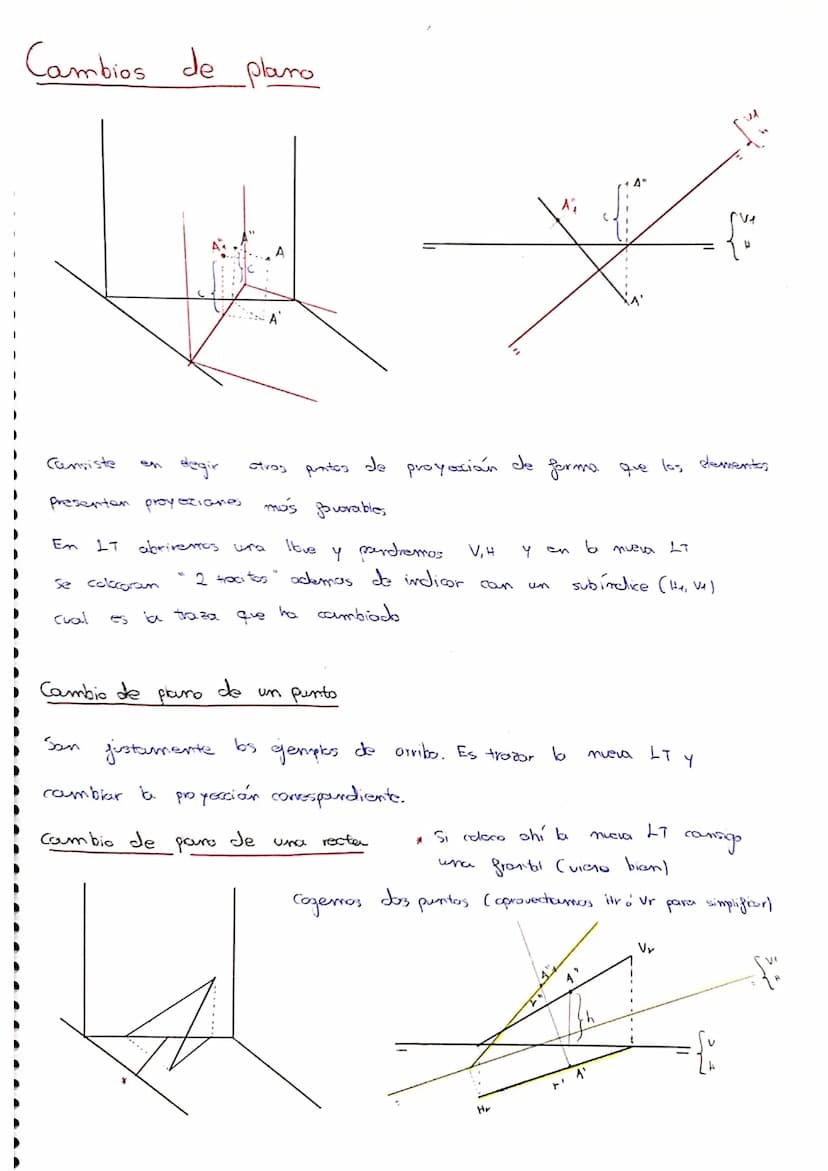 Cambios de plano
V1
H
A''
A''1
c
V1
H
A''1
A''
A
c
c
A'
A'
Consiste en elegir otros puntos de proyección de forma que los elementos
presentan proyecciones más favorables
En LT abriremos una llave y pondremos V,H y en la nueva LT
se colocaran "2 tracitos" ademas de indicar con un subíndice (H1, V1)
cual es la traza que ha cambiado
Cambio de plano de un punto
Son justamente los ejemplos de arriba. Es trazar la nueva LT y
cambiar la proyección correspondiente.
Cambio de plano de una recta
* Si coloco ahí la nueva LT consigo
una frontal (viene bien)
Cogemos dos puntos (aprovechamos Hr ó Vr para simplificar)
Vr
A''1
A''
r''
V1
H
h
V
H
r'
A'
Hr
*